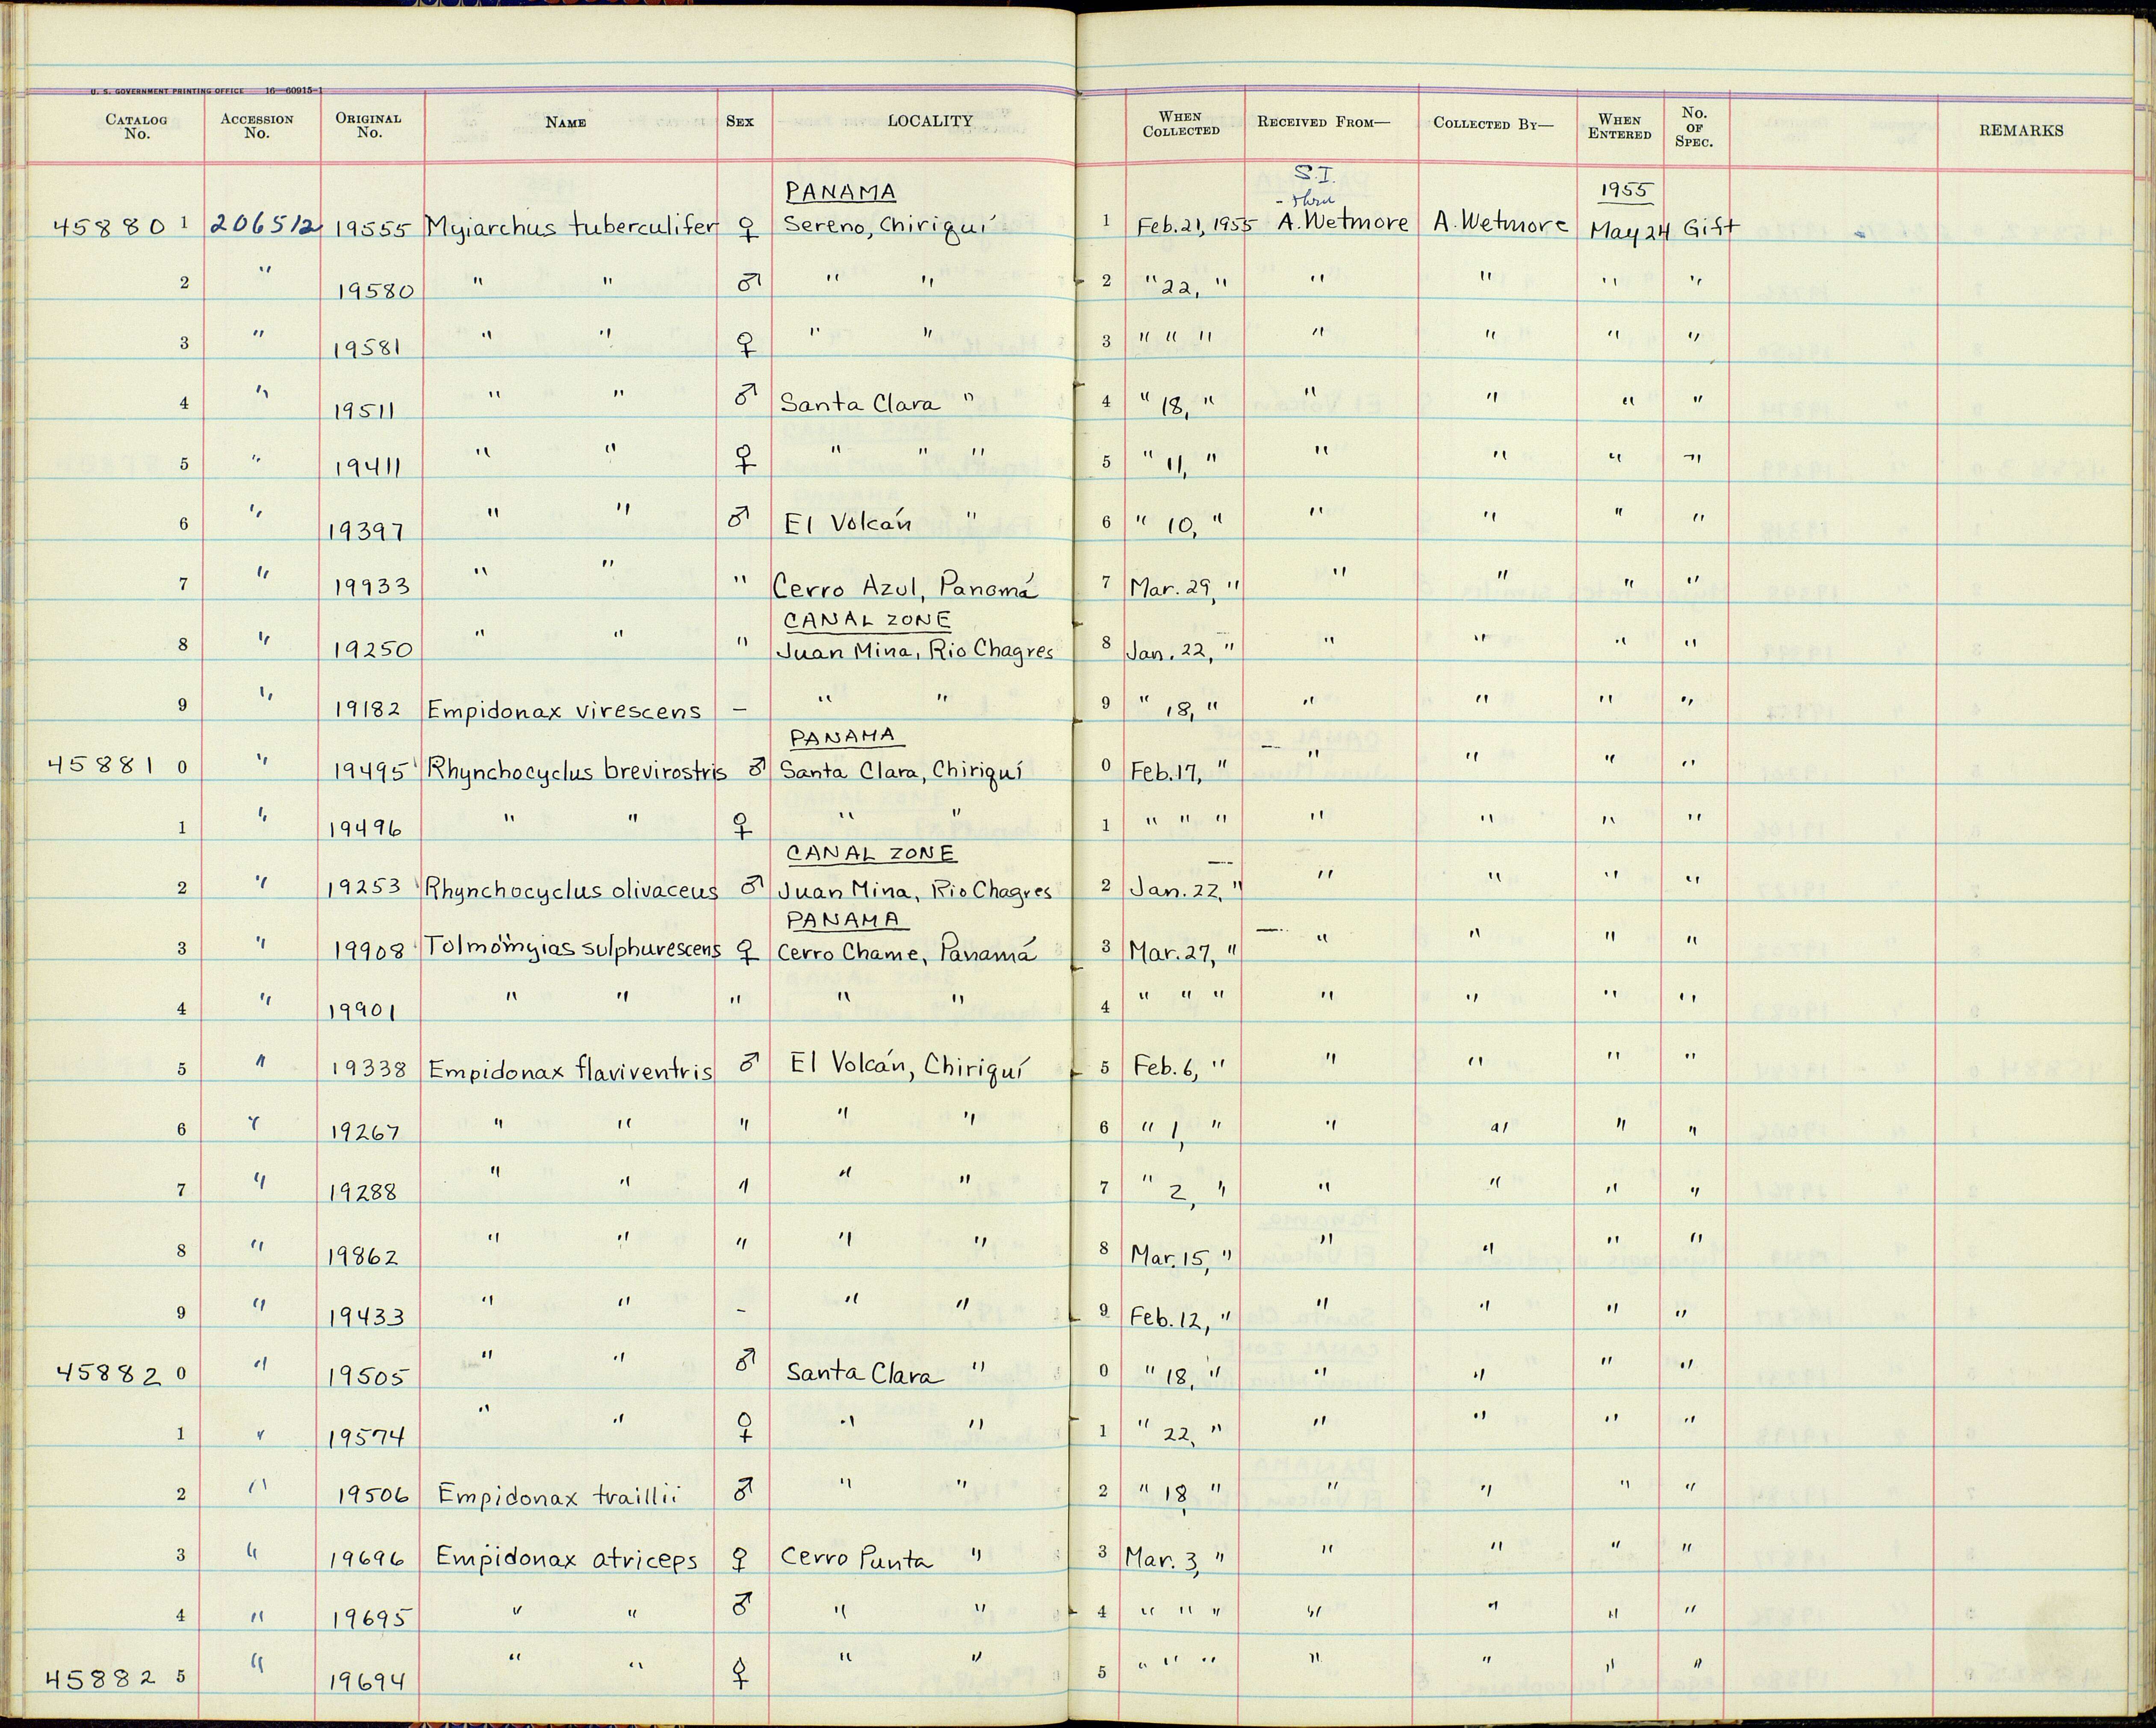 U. S. GOVERNMENT PRINTING OFFICE 16—60915-1
CATALOG No. ACCESSION No. ORIGINAL No. NAME SEX LOCALITY WHEN COLLECTED RECEIVED FROM— COLLECTED BY— WHEN ENTERED No. OF SPEC. REMARKS
PANAMA S.I. thru 1955
45880 1 206512 19555 Myiarchus tuberculifer ♀ Sereno, Chiriquí 1 Feb. 21, 1955 A. Wetmore A. Wetmore May 24 Gift
2 " 19580 " " ♂ " " 2 " 22, " " " " "
3 " 19581 " " ♀ " " 3 " " " " " " "
4 " 19511 " " ♂ Santa Clara " 4 " 18, " " " " "
5 " 19411 " " ♀ " " " 5 " 11, " " " " "
6 " 19397 " " ♂ El Volcán " 6 " 10, " " " " "
7 " 19933 " " " Cerro Azul, Panamá 7 Mar. 29, " " " " "
CANAL ZONE
8 " 19250 " " " Juan Mina, Rio Chagres 8 Jan. 22, " " " " "
9 " 19182 Empidonax virescens – " " 9 " 18, " " " " "
PANAMA
45881 0 " 19495 Rhynchocyclus brevirostris ♂ Santa Clara, Chiriquí 0 Feb. 17, " " " " "
1 " 19496 " " ♀ " " 1 " " " " " " "
CANAL ZONE
2 " 19253 Rhynchocyclus olivaceus ♂ Juan Mina, Rio Chagres 2 Jan. 22, " " " " "
PANAMA
3 " 19908 Tolmomyias sulphurescens ♀ Cerro Chame, Panamá 3 Mar. 27, " " " " "
4 " 19901 " " " " " 4 " " " " " " "
5 " 19338 Empidonax flaviventris ♂ El Volcán, Chiriquí 5 Feb. 6, " " " " "
6 " 19267 " " " " " 6 " 1, " " " " "
7 " 19288 " " " " " 7 " 2, " " " " "
8 " 19862 " " " " " 8 Mar. 15, " " " " "
9 " 19433 " " – " " 9 Feb. 12, " " " " "
45882 0 " 19505 " " ♂ Santa Clara " 0 " 18, " " " " "
1 " 19574 " " ♀ " " 1 " 22, " " " " "
2 " 19506 Empidonax traillii ♂ " " 2 " 18, " " " " "
3 " 19696 Empidonax atriceps ♀ Cerro Punta " 3 Mar. 3, " " " " "
4 " 19695 " " ♂ " " 4 " " " " " " "
45882 5 " 19694 " " ♀ " " 5 " " " " " " "